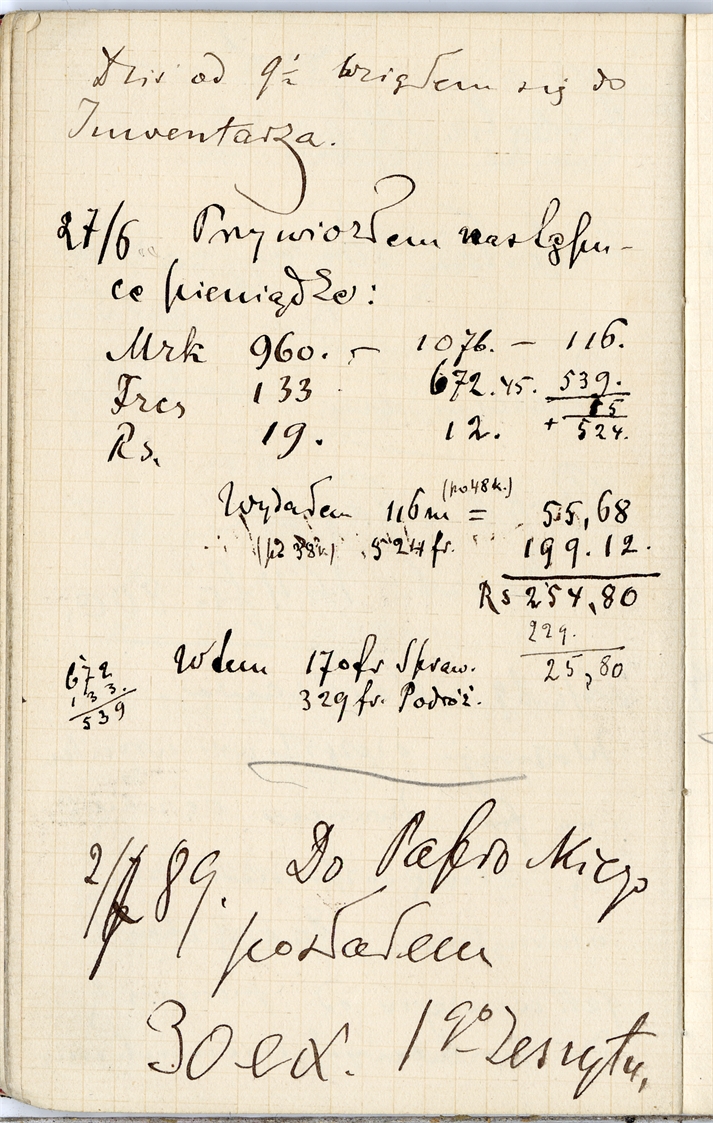 Dziś od 9½ wziąłem się do
Inwentarza.
27/6 Przywiozłem następu-
ce pieniądze:
Mrk 960. – 1076. – 116.
Frcs 133 672.45. 539.
15
Rs. 19. 12. + 524.
(po 48 k.)
Wydałem 116 m = 55,68
(po 38 k) 524 fr. " 199.12.
Rs 254,80
229.
25,80
W tem 170 fr Spraw.
329 fr. Podróż.
672
133.
539
2/7 89. Do
posłałem
30 ex. 1go Zeszytu,